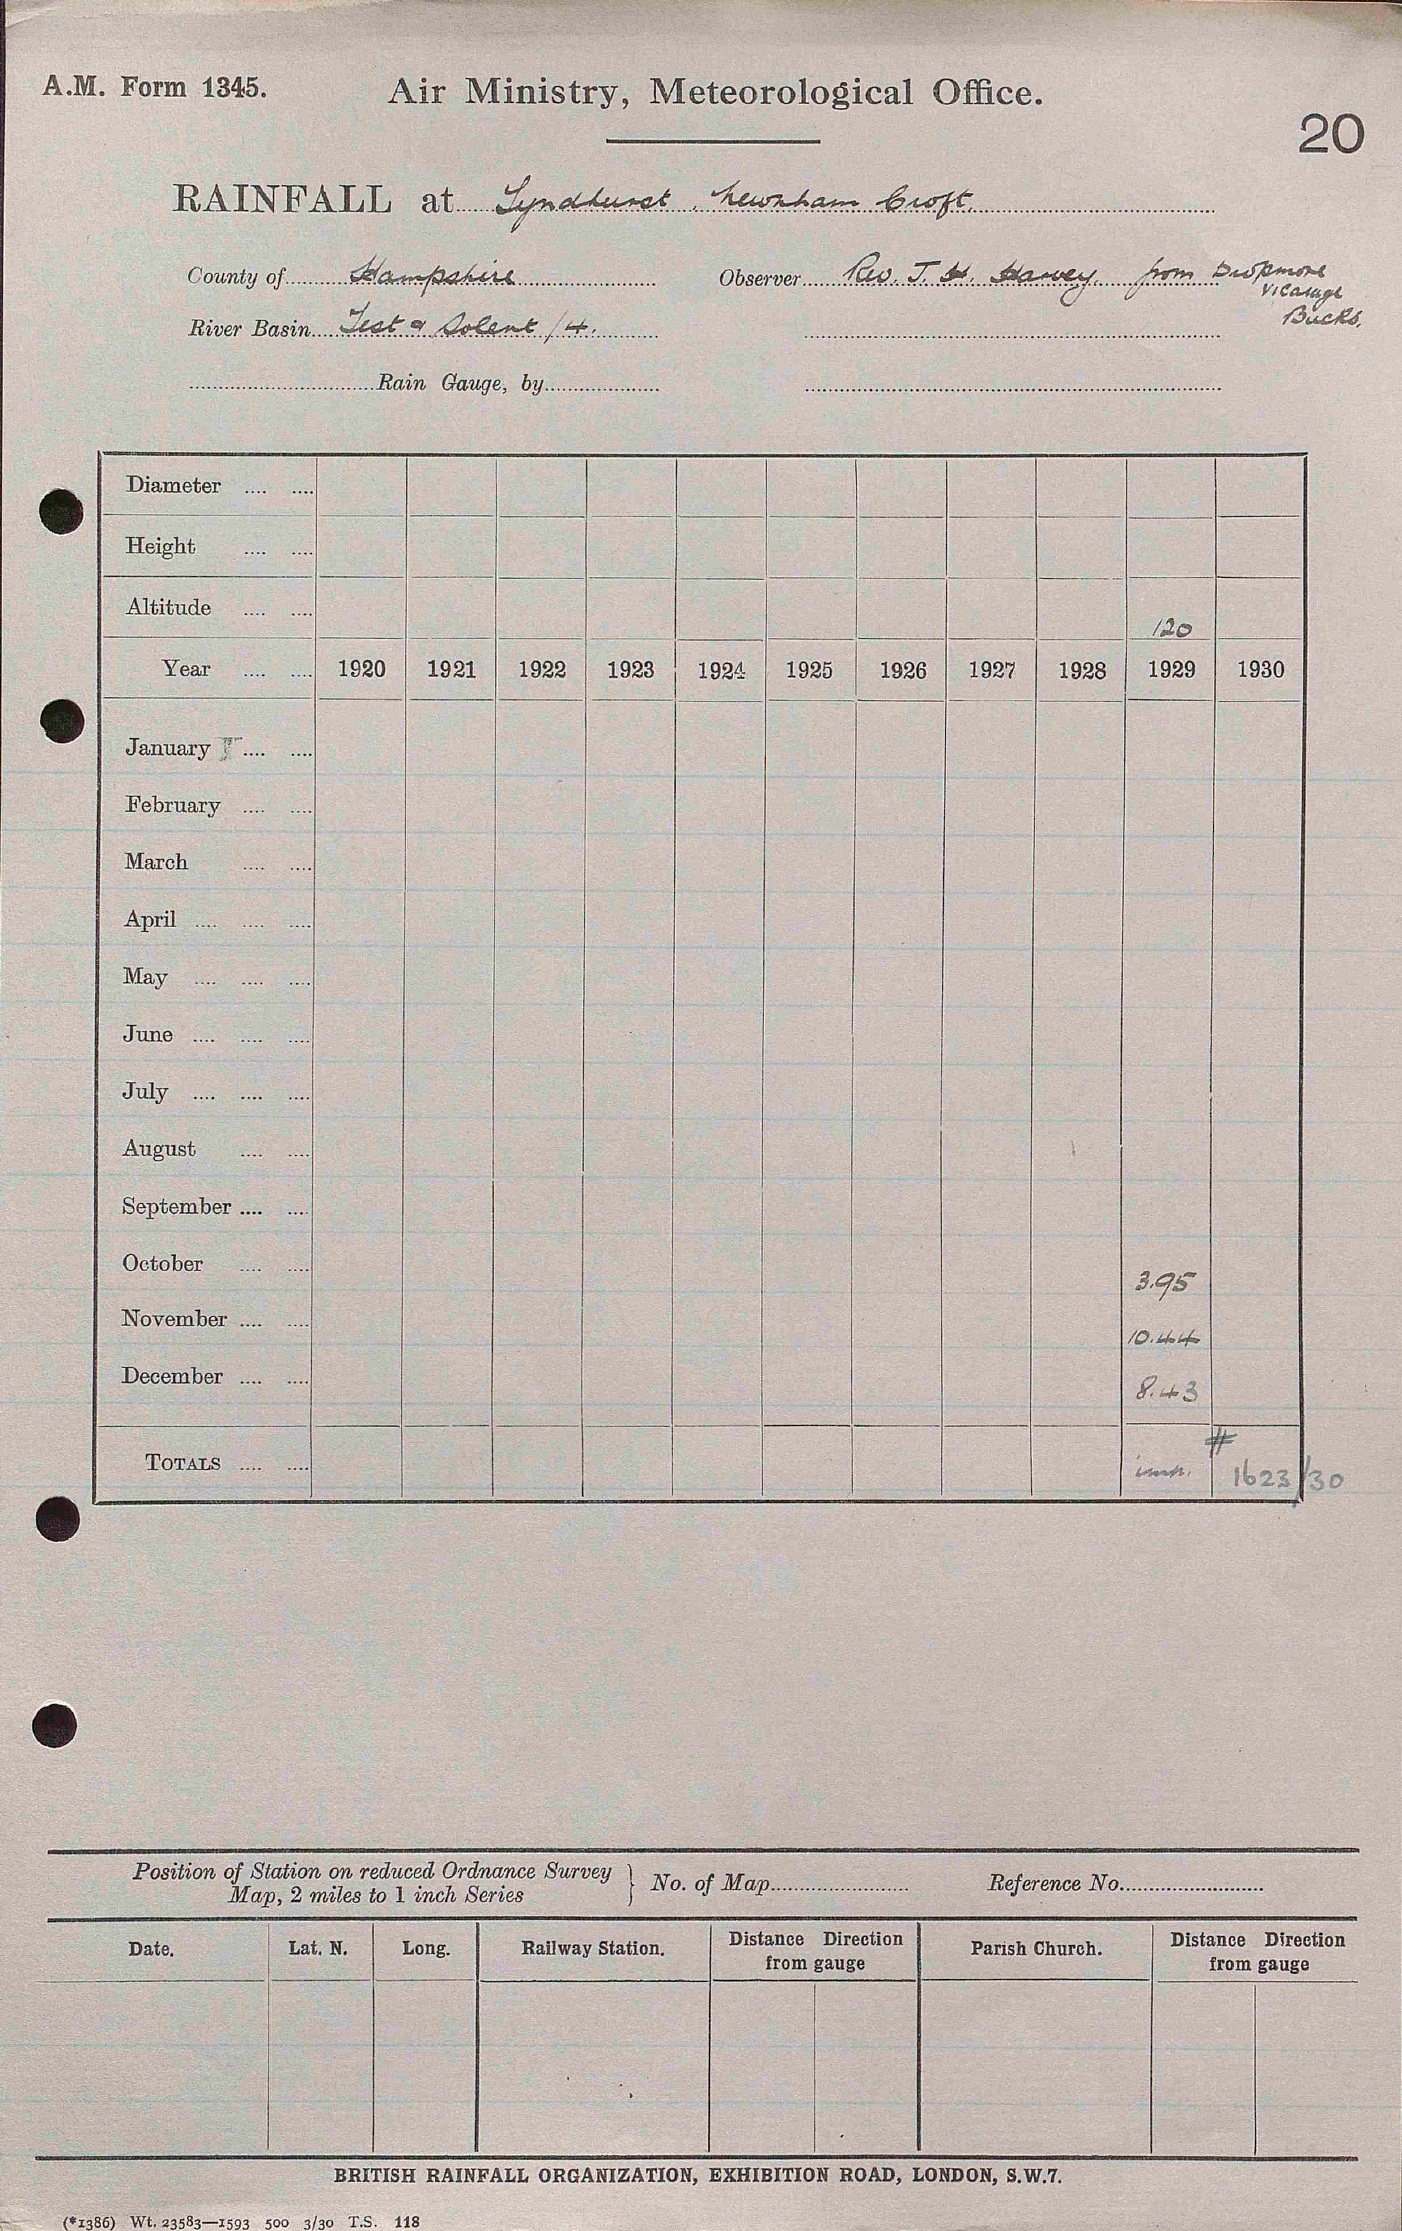 A.M. Form 1345.
Air Ministry, Meteorological Office.
20
RAINFALL at Lyndhurst, Newnham Croft.
County of Hampshire
Observer Rev. J. H. Harvey. from Dropmore
Vicarage
Bucks.
River Basin Test & Solent /4.
Rain Gauge, by
Diameter .... ....
Height .... ....
Altitude .... .... 120
Year .... .... 1920 1921 1922 1923 1924 1925 1926 1927 1928 1929 1930
January .... ....
February .... ....
March .... ....
April .... .... ....
May .... .... ....
June .... .... ....
July .... .... ....
August .... ....
September .... ....
October .... .... 3.95
November .... .... 10.44
December .... .... 8.43
TOTALS .... .... imp. # 1623/30
Position of Station on reduced Ordnance Survey
Map, 2 miles to 1 inch Series } No. of Map Reference No.
Date. Lat. N. Long. Railway Station. Distance Direction
from gauge Parish Church. Distance Direction
from gauge
BRITISH RAINFALL ORGANIZATION, EXHIBITION ROAD, LONDON, S.W.7.
(*1386) Wt. 23583—1593 500 3/30 T.S. 118